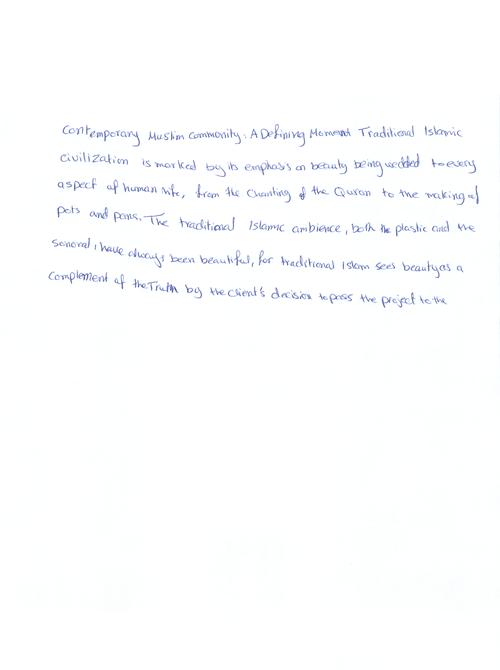 Contemporary Muslim Community: A Defining Moment Traditional Islamic
Civilization is marked by its emphasis on beauty being wedded to every
aspect of human life, from the Chanting of the Quran to the making of
pots and pans. The traditional Islamic ambience, both the plastic and the
sonoral, have always been beautiful, for traditional Islam sees beauty as a
complement of the Truth by the client's decision to pass the project to the